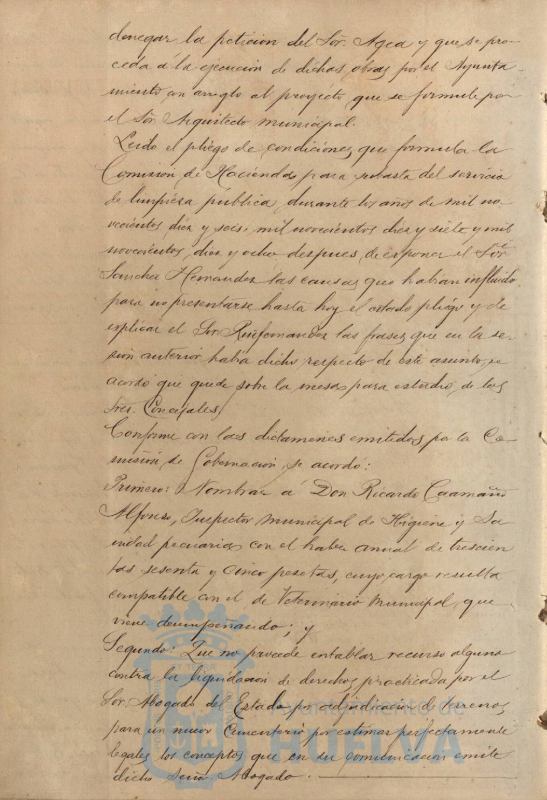 denegar la peticion del Sor. Agea y que se pro-
ceda a la ejecución de dichas obras por el Ayunta
miento con arreglo al proyecto que se formule por
el Sor. Arquitecto municipal.
Leido el pliego de condiciones que formula la
Comisión de Hacienda para subasta del servicio
de limpieza pública durante los años de mil no-
vecientos diez y seis, mil novecientos diez y siete y mil
novecientos diez y ocho despues de esponer el Sor.
Sanchez Hernandez las causas que habian influido
para no presentarse hasta hoy el citado pliego y de
esplicar el Sor. Ruifernandez las frases que en la se-
sión anterior habia dicho respecto de este asunto, se
acordó que quede sobre la mesa para estudio de los
Sres. Concejales.
Conforme con los dictamenes emitidos por la Co-
misión de Gobernación, se acordó:
Primero: Nombrar á Don Ricardo Caamaño
Alfonso, Inspector municipal de Higiene y Sa
nidad pecuaria con el haber anual de trescien
tas sesenta y cinco pesetas, cuyo cargo resulta
compatible con el de Veterinario municipal, que
viene desempeñando; y
Segundo: Que no procede entablar recurso alguno
contra la liquidación de derechos practicada por el
Sor. Abogado del Estado por adjudicación de terrenos
para un nuevo Cementerio por estimar perfectamente
legales los conceptos que en su comunicación emite
dicho Señor Abogado.
Ayuntamiento de
HUELVA